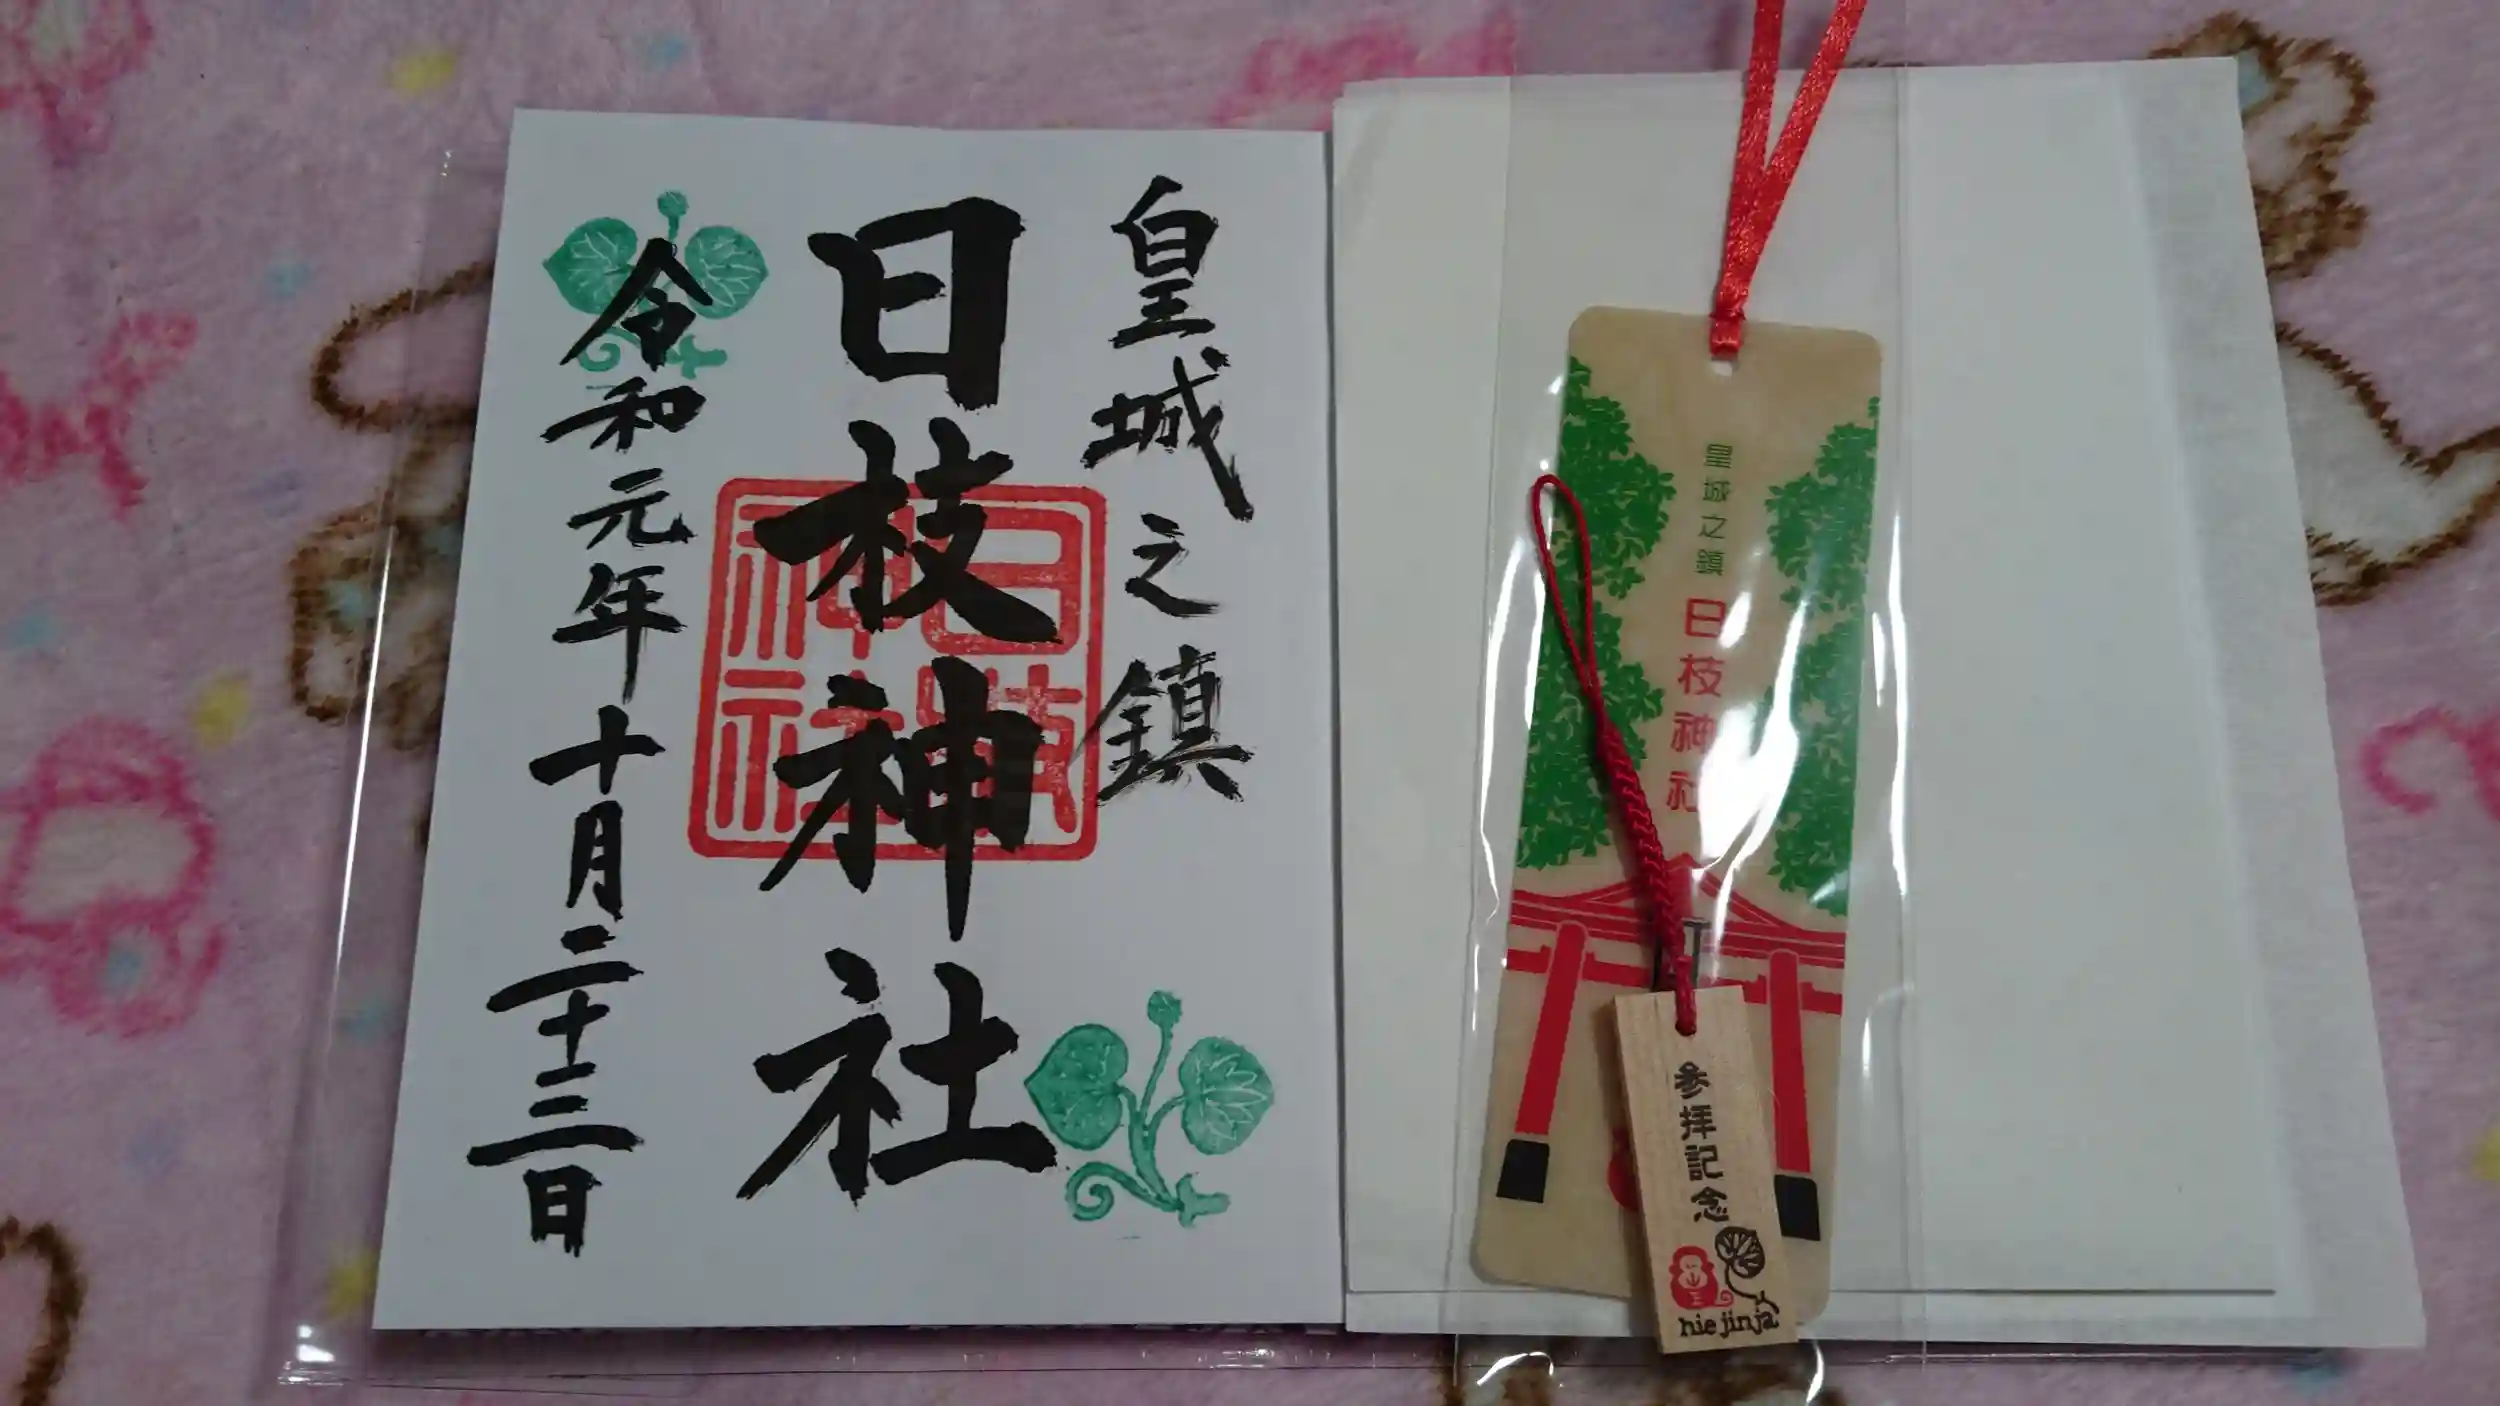 皇城之鎮
日枝神社
令和元年十月二十三日
日枝神社
皇城之鎮
日枝神社
参拝記念
hie jinja